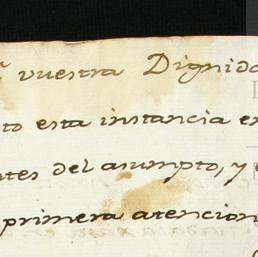 vuestra Dignida
to esta instancia en
ntes del asumpto, y
primera atencion